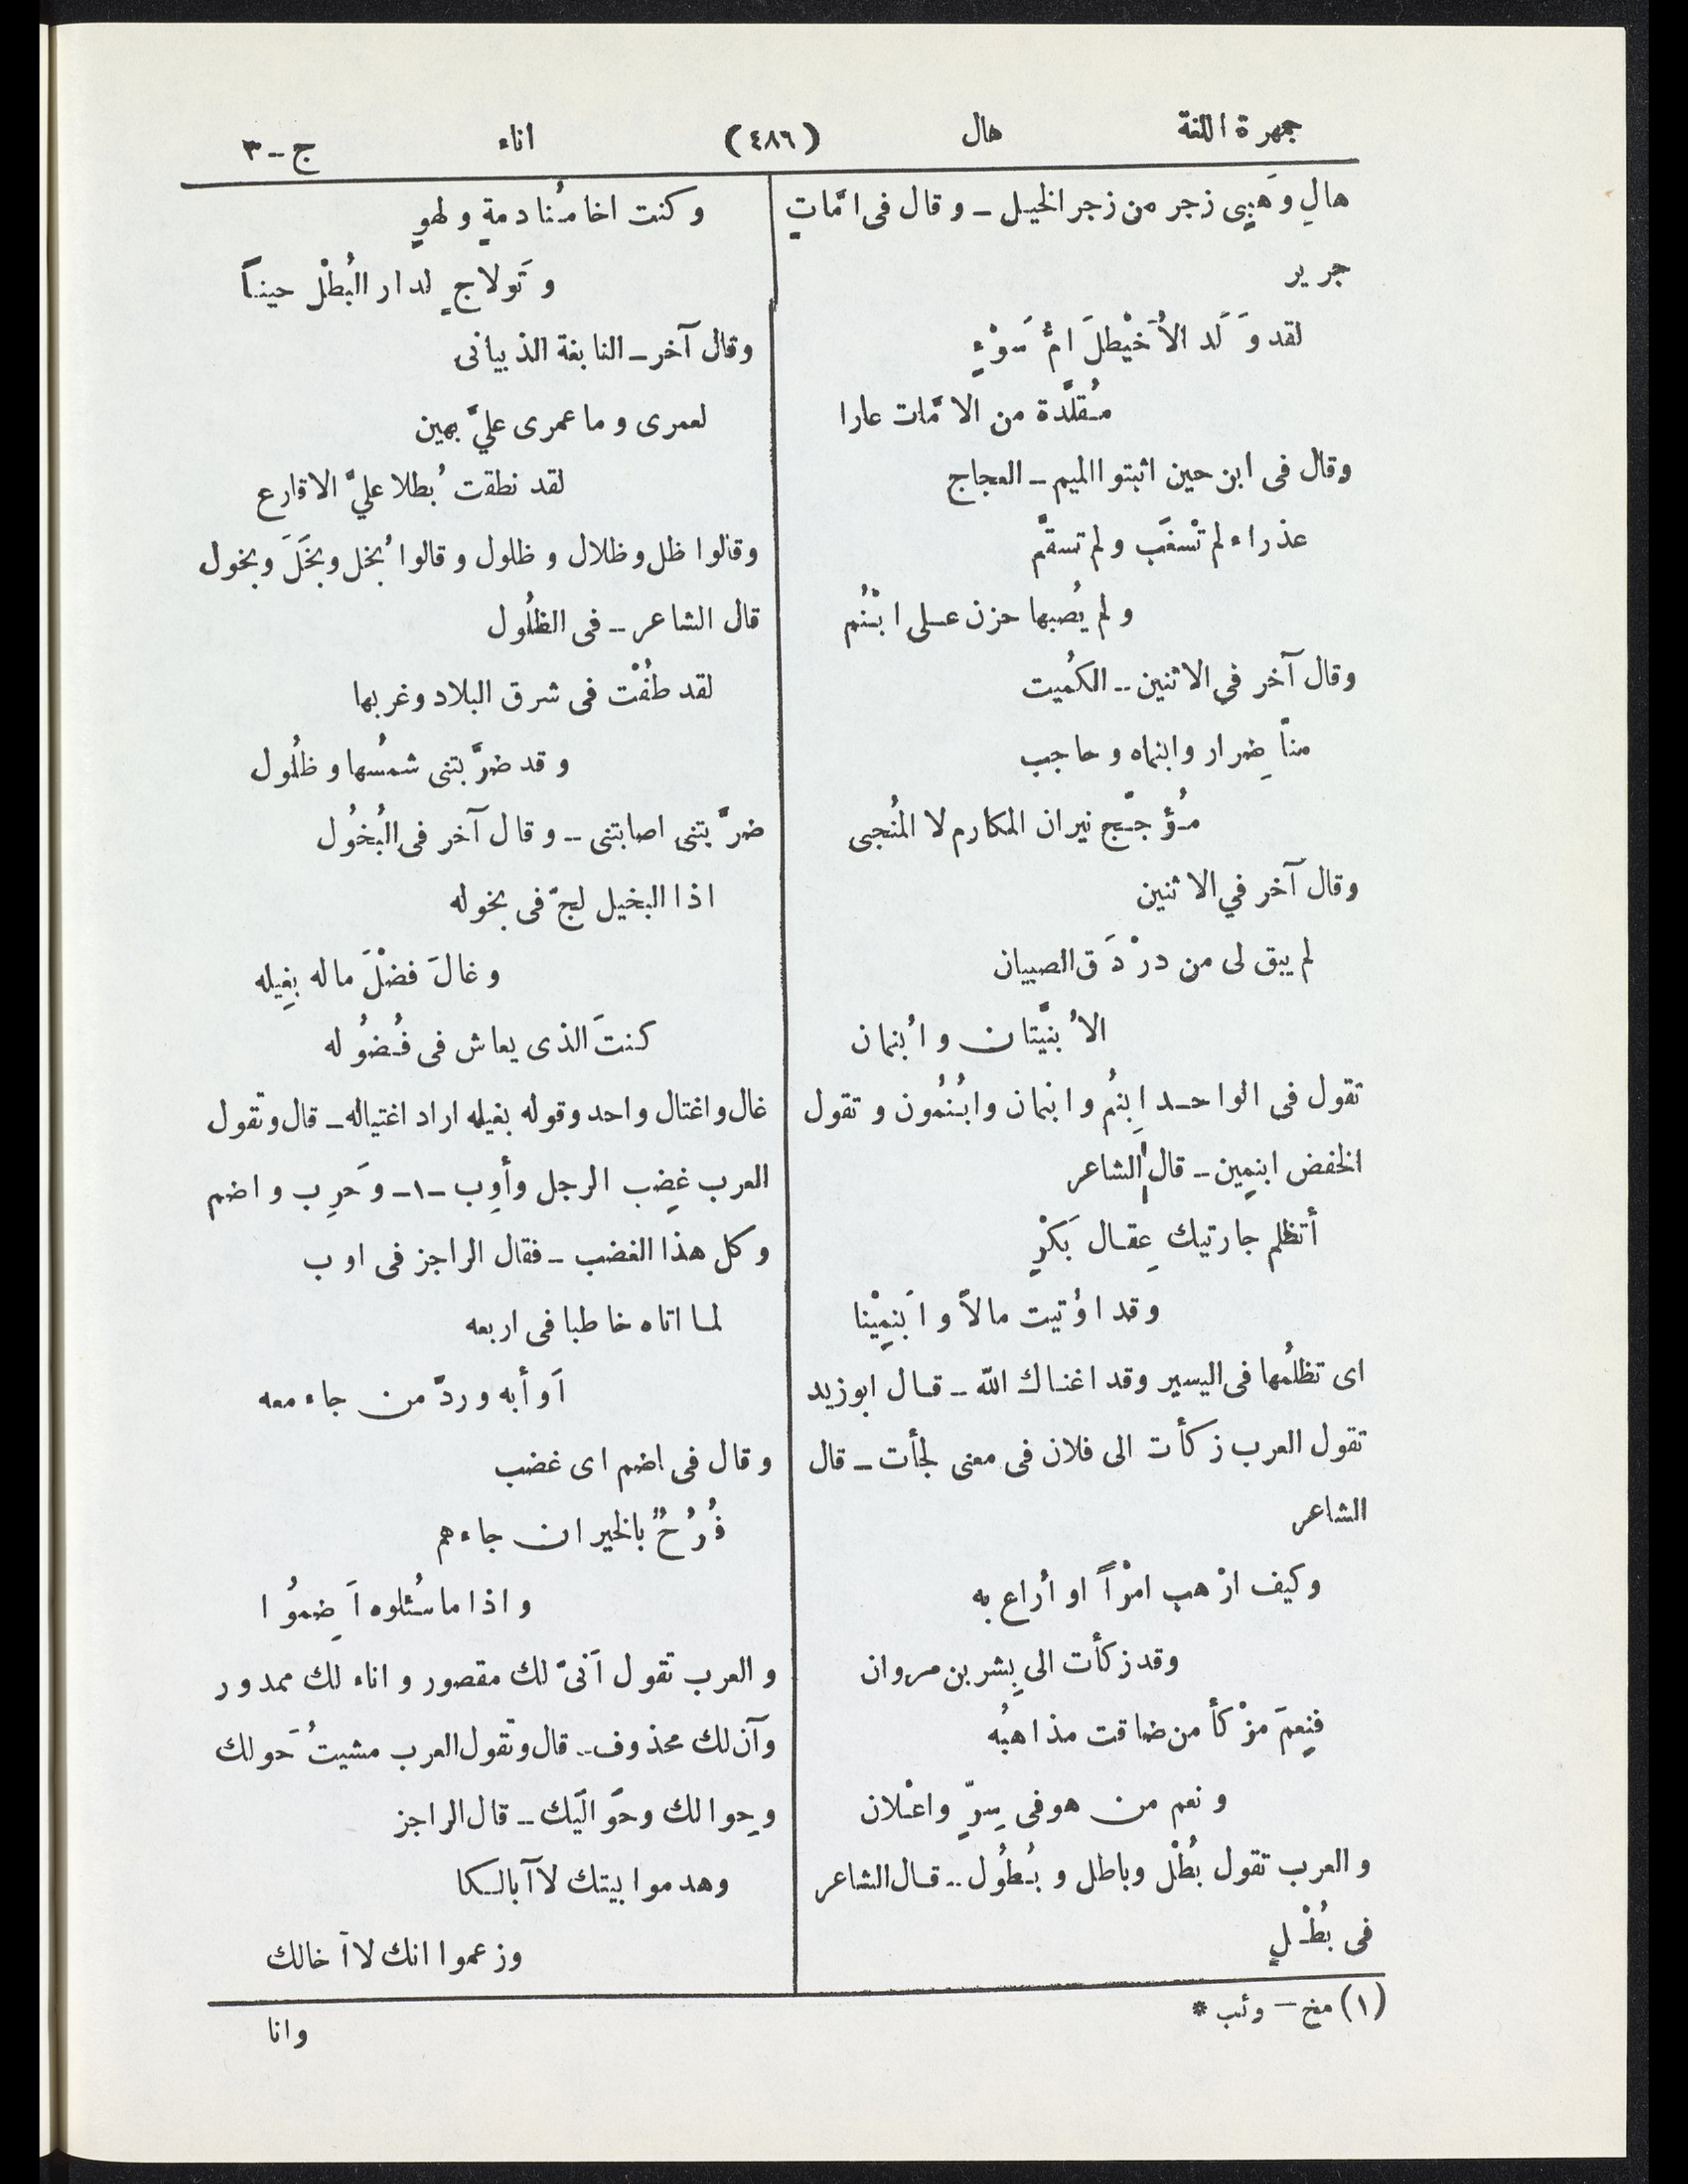 جمهرة اللغة هال (٤٨٦) اناء ج-٣
هالِ وهَبِى زجر من زجر الخيل - وقال فى امَّاتٍ
جرير
لقد وَلَد الأُخَيْطلَ امُّ سَوْءٍ
مُقلَّدة من الامَّات عارا
وقال فى ابن حين اثبتوا الميم - العجاج
عذراء لم تسْغَب ولم تسقَّم
ولم يُصبها حزن على ابْنُم
وقال آخر في الاثنين - الكُميت
منّا ضِرار وابنماه وحاجب
مُؤجّج نيران المكارم لا المُنجى
وقال آخر في الاثنين
لم يبق لى من درْدَق الصبيان
الاُ بنيَّتان واُبنمان
تقول فى الواحد اِبنُم وابنمان وابُنُمون وتقول
الخفض ابنمِين - قال الشاعر
أتظلم جارتيك عِقال بَكْرٍ
وقد اوُتيت مالاً واَبنمِيْنا
اى تظلمُها فى اليسير وقد اغناك الله - قال ابوزيد
تقول العرب زكأت الى فلان فى معنى لجأت - قال
الشاعر
وكيف ارْهب امرْاً او أراع به
وقد زكأت الى بِشر بن مروان
فنِعمَ مزْكأ من ضاقت مذاهبُه
ونعم من هو فى سِرٍّ واعلان
والعرب تقول بُطْل وباطل وبُطُول - قال الشاعر
فى بُطْلٍ
وكنت اخا مُنادمةٍ ولهوٍ
وَتَولاجٍ لدار البُطْل حيناً
وقال آخر - النابغة الذبيانى
لعمرى وما عمرى عليَّ بهين
لقد نطقت بُطلا عليَّ الاقارع
وقالوا ظل وظلال وظلول وقالوا بُخل وبَخَلَ وبخول
قال الشاعر - فى الظلُول
لقد طفُتْ فى شرق البلاد وغربها
وقد ضرَّبتنى شمسُها وظلُول
ضرَّبتنى اصابتنى - وقال آخر فى البُخُول
اذا البخيل لجّ فى بخوله
وغالَ فضْلَ ماله بغِيله
كنتَ الذى يعاش فى فُضُوله
غال واغتال واحد وقوله بغيله اراد اغتياله - قال وتقول
العرب غضِب الرجل وأوِب -١- وَحَرِب واضم
وكل هذا الغضب - فقال الراجز فى اوب
لما اتاه خاطبا فى اربعه
اَوأبه وردّ من جاء معه
وقال فى اضم اى غضب
فُرُحٌ بالخير ان جاءهم
واذا ما سُئلوه اَضِمُوا
والعرب تقول اَنىّ لك مقصور واناء لك ممدور
وآن لك محذوف - قال وتقول العرب مشيتُ حَولك
وحِوالك وحَوالَيك - قال الراجز
وهدموا بيتك لاآبالكا
وزعموا انك لاآخالك
(١) مخ - وئب *
وانا